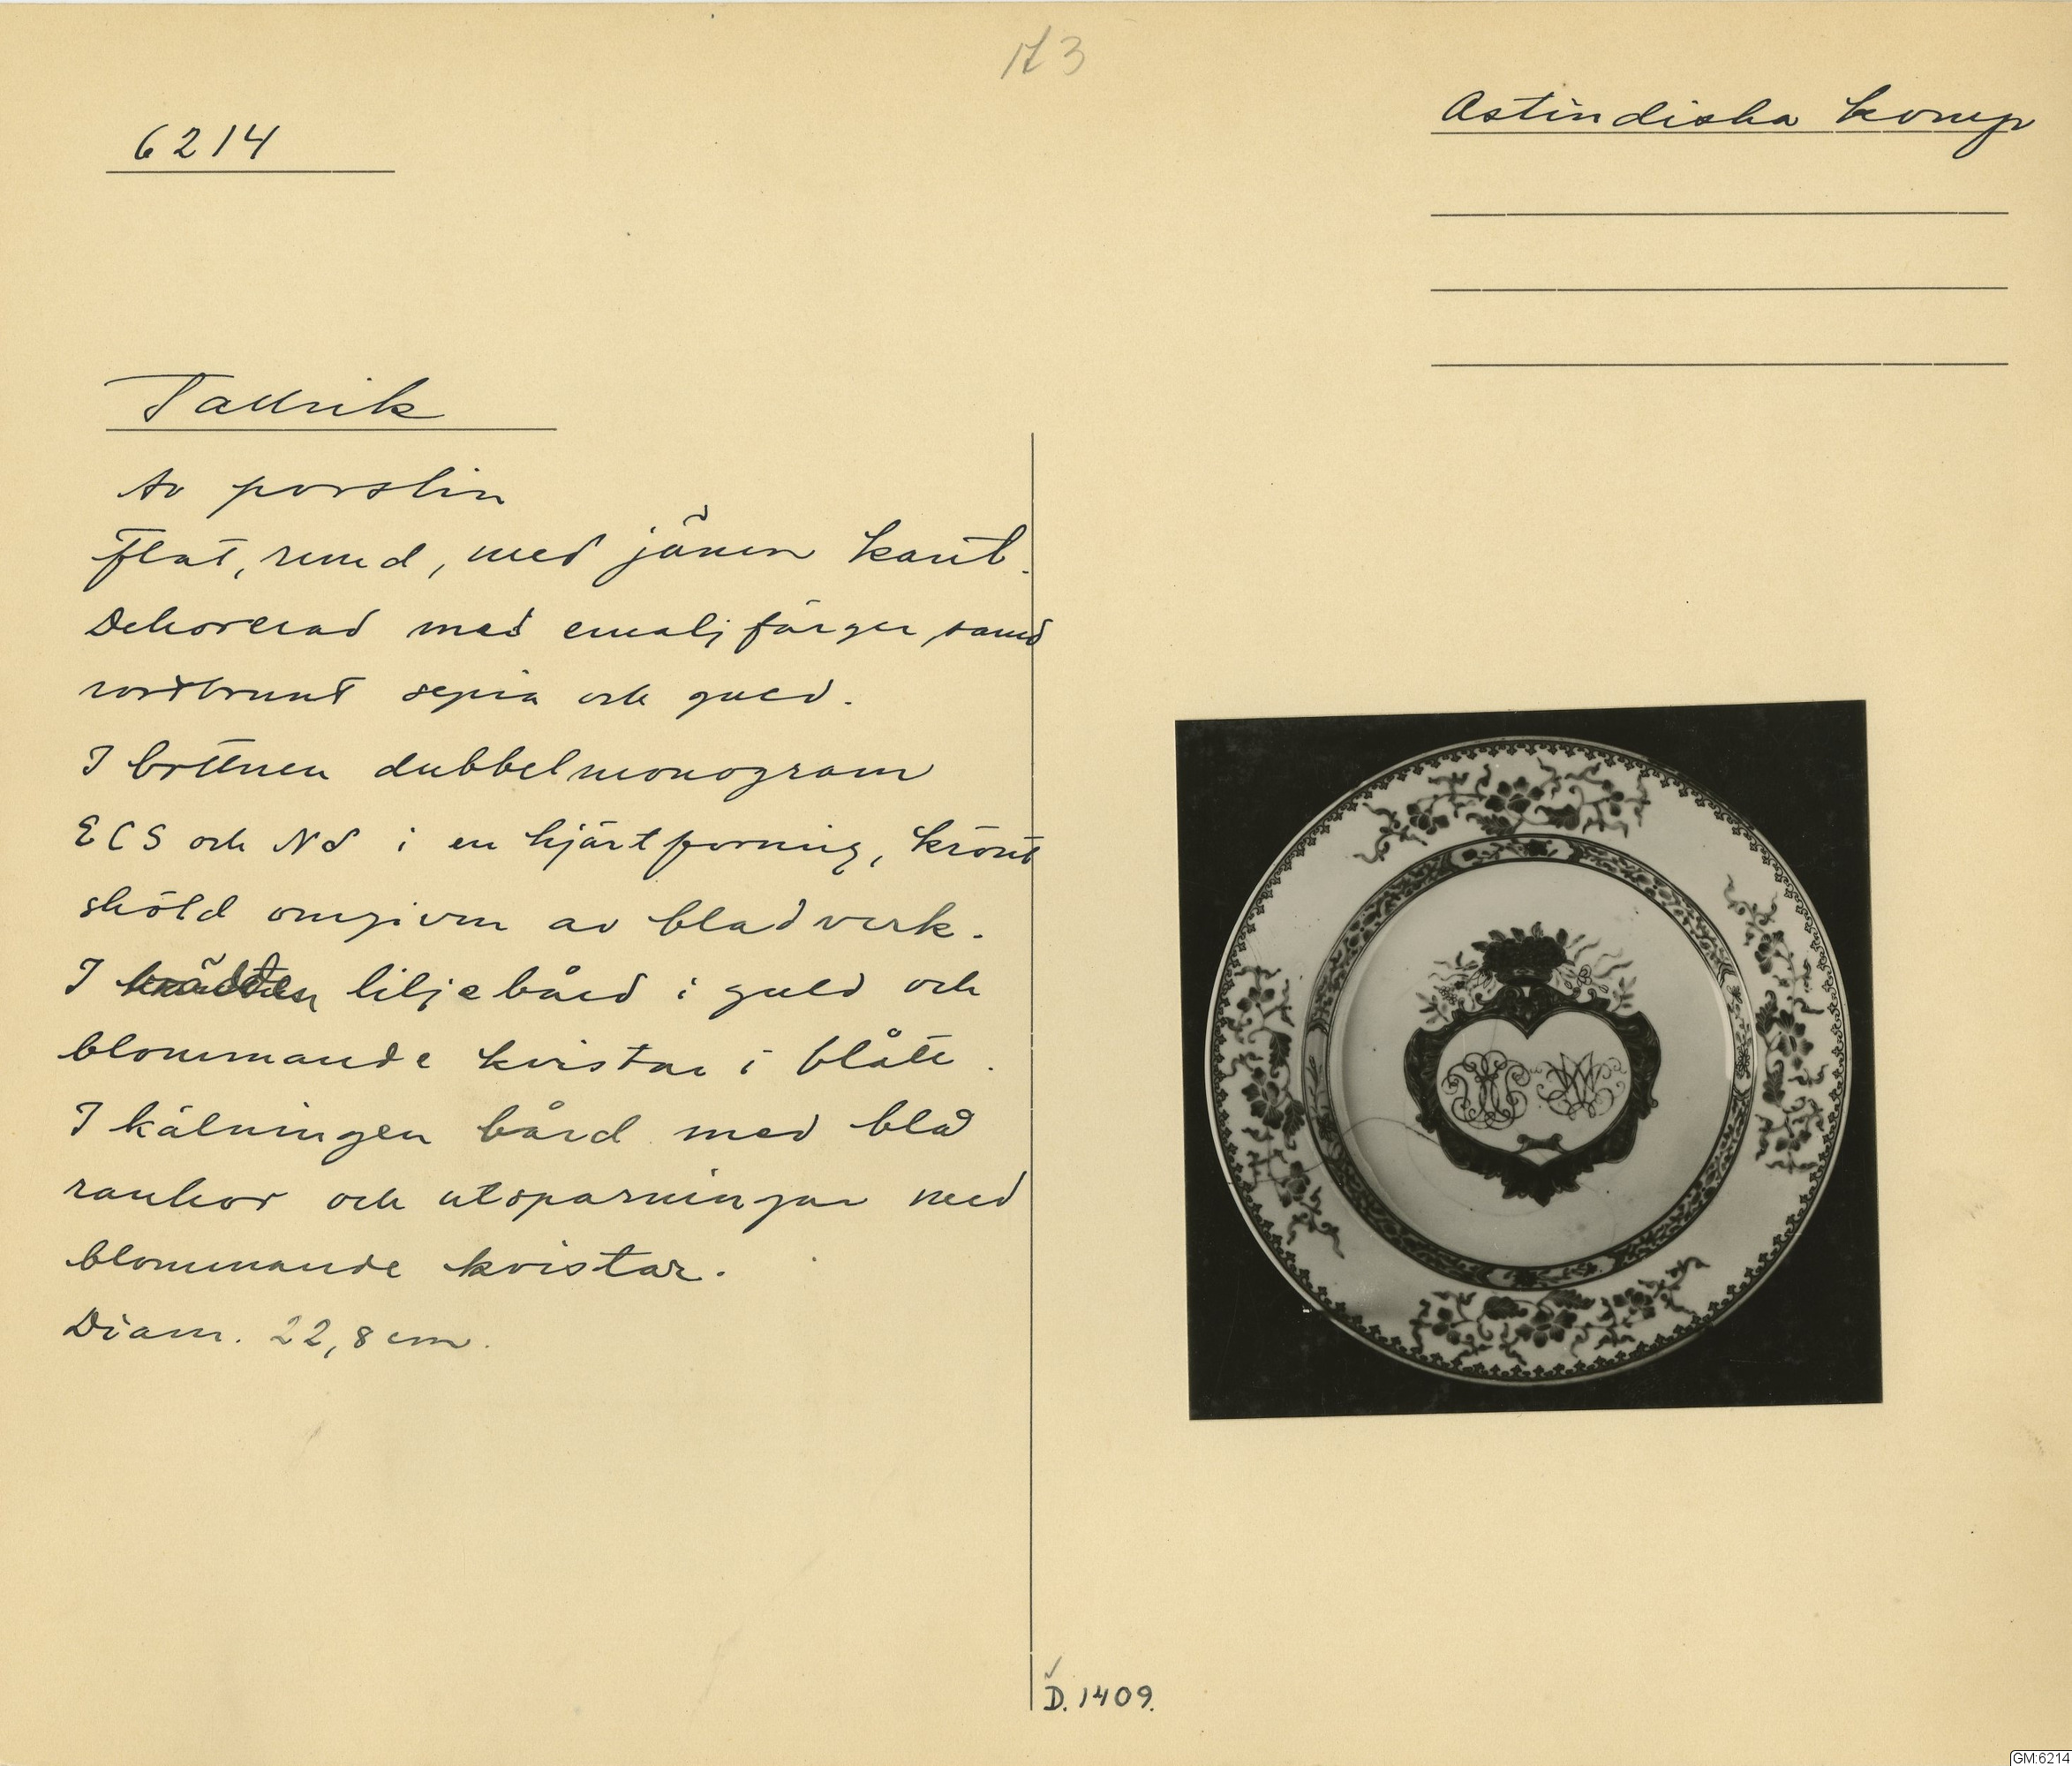 173
6214
Ostindiska komp
Tallrik
Av porslin
Flat, rund, med jämn kant.
Dekorerad med emaljfärger, samt
rostbrunt sepia och guld.
I bottnen dubbelmonogram
ECS och NS i en hjärtformig, krönt
sköld omgiven av bladverk.
I brädden liljebård i guld och
blommande kvistar i blått.
I kälningen bård med blad
rankor och utsparningar med
blommande kvistar.
Diam. 22,8 cm.
D. 1409.
GM:6214